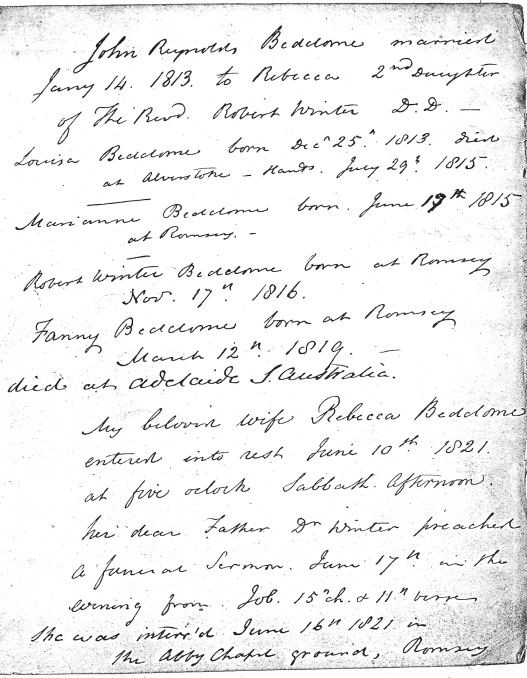 John Reynolds Beddome married
Jany 14. 1813. to Rebecca 2nd Daughter
of The Revd. Robert Winter D.D. —
Louisa Beddome born Decr 25th 1813. died
at Alverstoke - Hants. July 29th 1815.
Marianne Beddome born. June 19th 1815
at Romsey. -
Robert Winter Beddome born at Romsey
Nov. 17th 1816.
Fanny Beddome born at Romsey
March 12th. 1819. —
died at Adelaide S. Australia.
My beloved wife Rebecca Beddome
entered into rest June 10th 1821.
at five oclock Sabbath Afternoon.
her dear Father Dr Winter preached
a funeral Sermon. June 17th in the
evening from. Job. 15 ch. & 11th verse
She was interr'd June 16th 1821 in
the Abby Chapel ground, Romsey